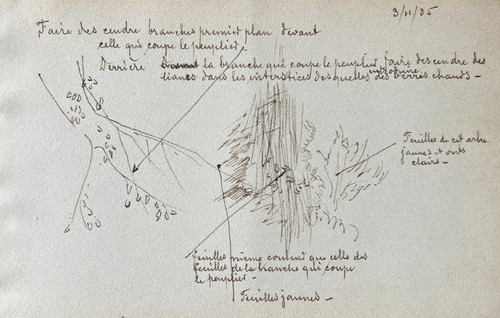 3/11/85
Faire des cendre branches premier plan devant
celle qui coupe le peuplier
Derrière la branche qui coupe le peuplier faire descendre des
lianes dans les interstices des quelles des verres chauds -
Feuilles de cet arbre
jaunes et verts
clairs -
Feuilles même couleur que celle des
feuilles de la branche qui coupe
le peuplier -
Feuilles jaunes -